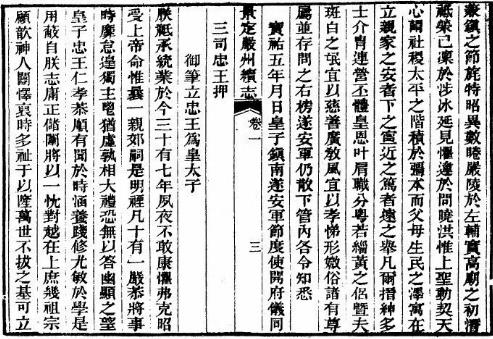 兼鎮之節旄特昭異數睠嚴陵於左輔實高廟之初潛
祗榮已凜於涉冰延見懼違於問曉洪惟上聖勤契天
心閟社稷太平之階積於彌本而父母生民之澤寓在
立親家之安者下之寧近之篤者遠之舉凡爾搢紳多
士介冑連營丕體皇恩叶肩職分粤若緇黃之侶暨夫
斑白之氓宜以慈善廣敎風宜以孝悌形媺俗諸有尊
屬並存問之右榜遂安軍仍散下管內各令知悉
寶祐五年月日皇子鎮南遂安軍節度使開府儀同
景定嚴州續志 卷一 三
三司忠王押
御筆立忠王爲皇太子
朕祗承統業於今三十有七年夙夜不敢康懼弗克昭
受上帝命惟曩一親郊嗣是明禋凡十有一嚴恭將事
時靡怠遑獨主鬯猶虛孰相大禮恐無以答幽顯之望
皇子忠王仁孝恭順有聞於時涵養踐修尤敏於學是
用敲自朕志庸正儲闈將以一忱對越在上庶幾祖宗
顧歆神人闓懌裒時多祉于以隆萬世不拔之基可立